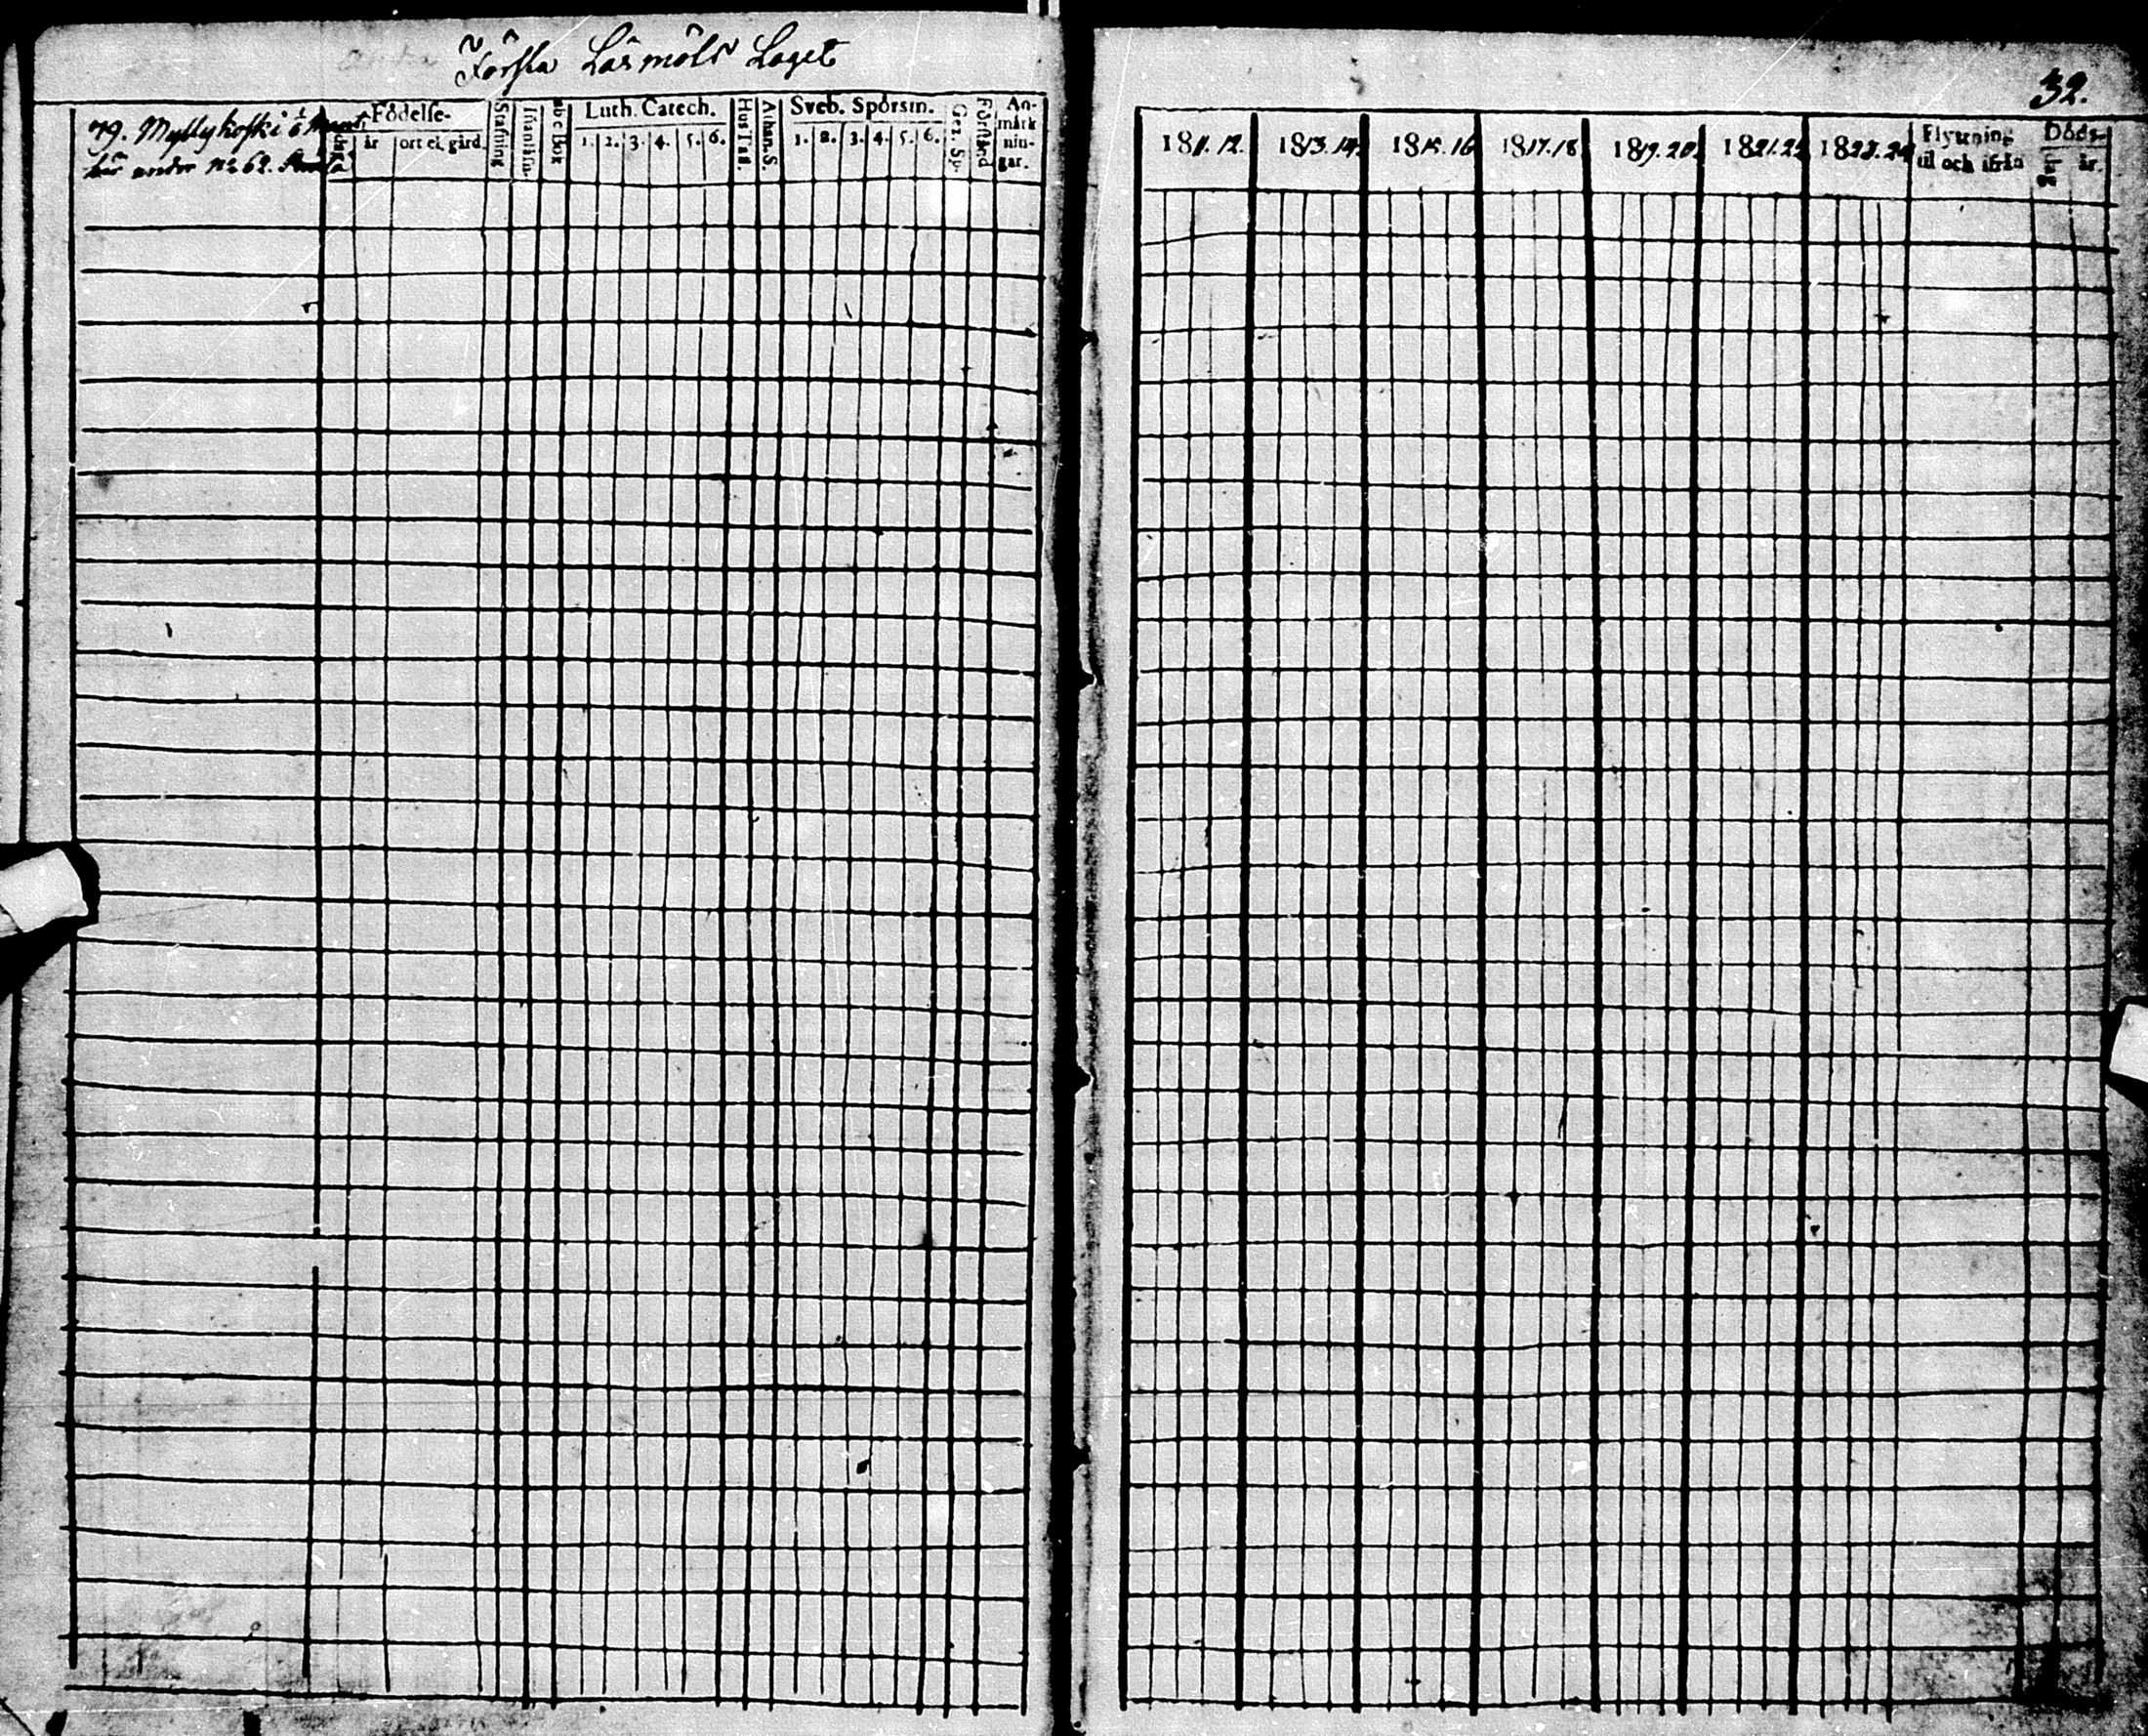 Första Läsmöts Laget
32.
79. Myllykoski 1/6 Mant.
under No 62.
Födelse-
dag år ort el. gård.
Stafning
abc bok
Luth. Catech.
1. 2. 3. 4. 5. 6.
Hus Taf.
Athan. S.
Sveb. Spörsm.
1. 2. 3. 4. 5. 6.
Ger. Sp.
Förstånd
An-
märk
nin-
gar.
1811. 12. 1813. 14. 1815. 16 1817. 18 1819. 20. 1821. 22 1823. 24
Flyttning
til och ifrån
Döds-
dag år.